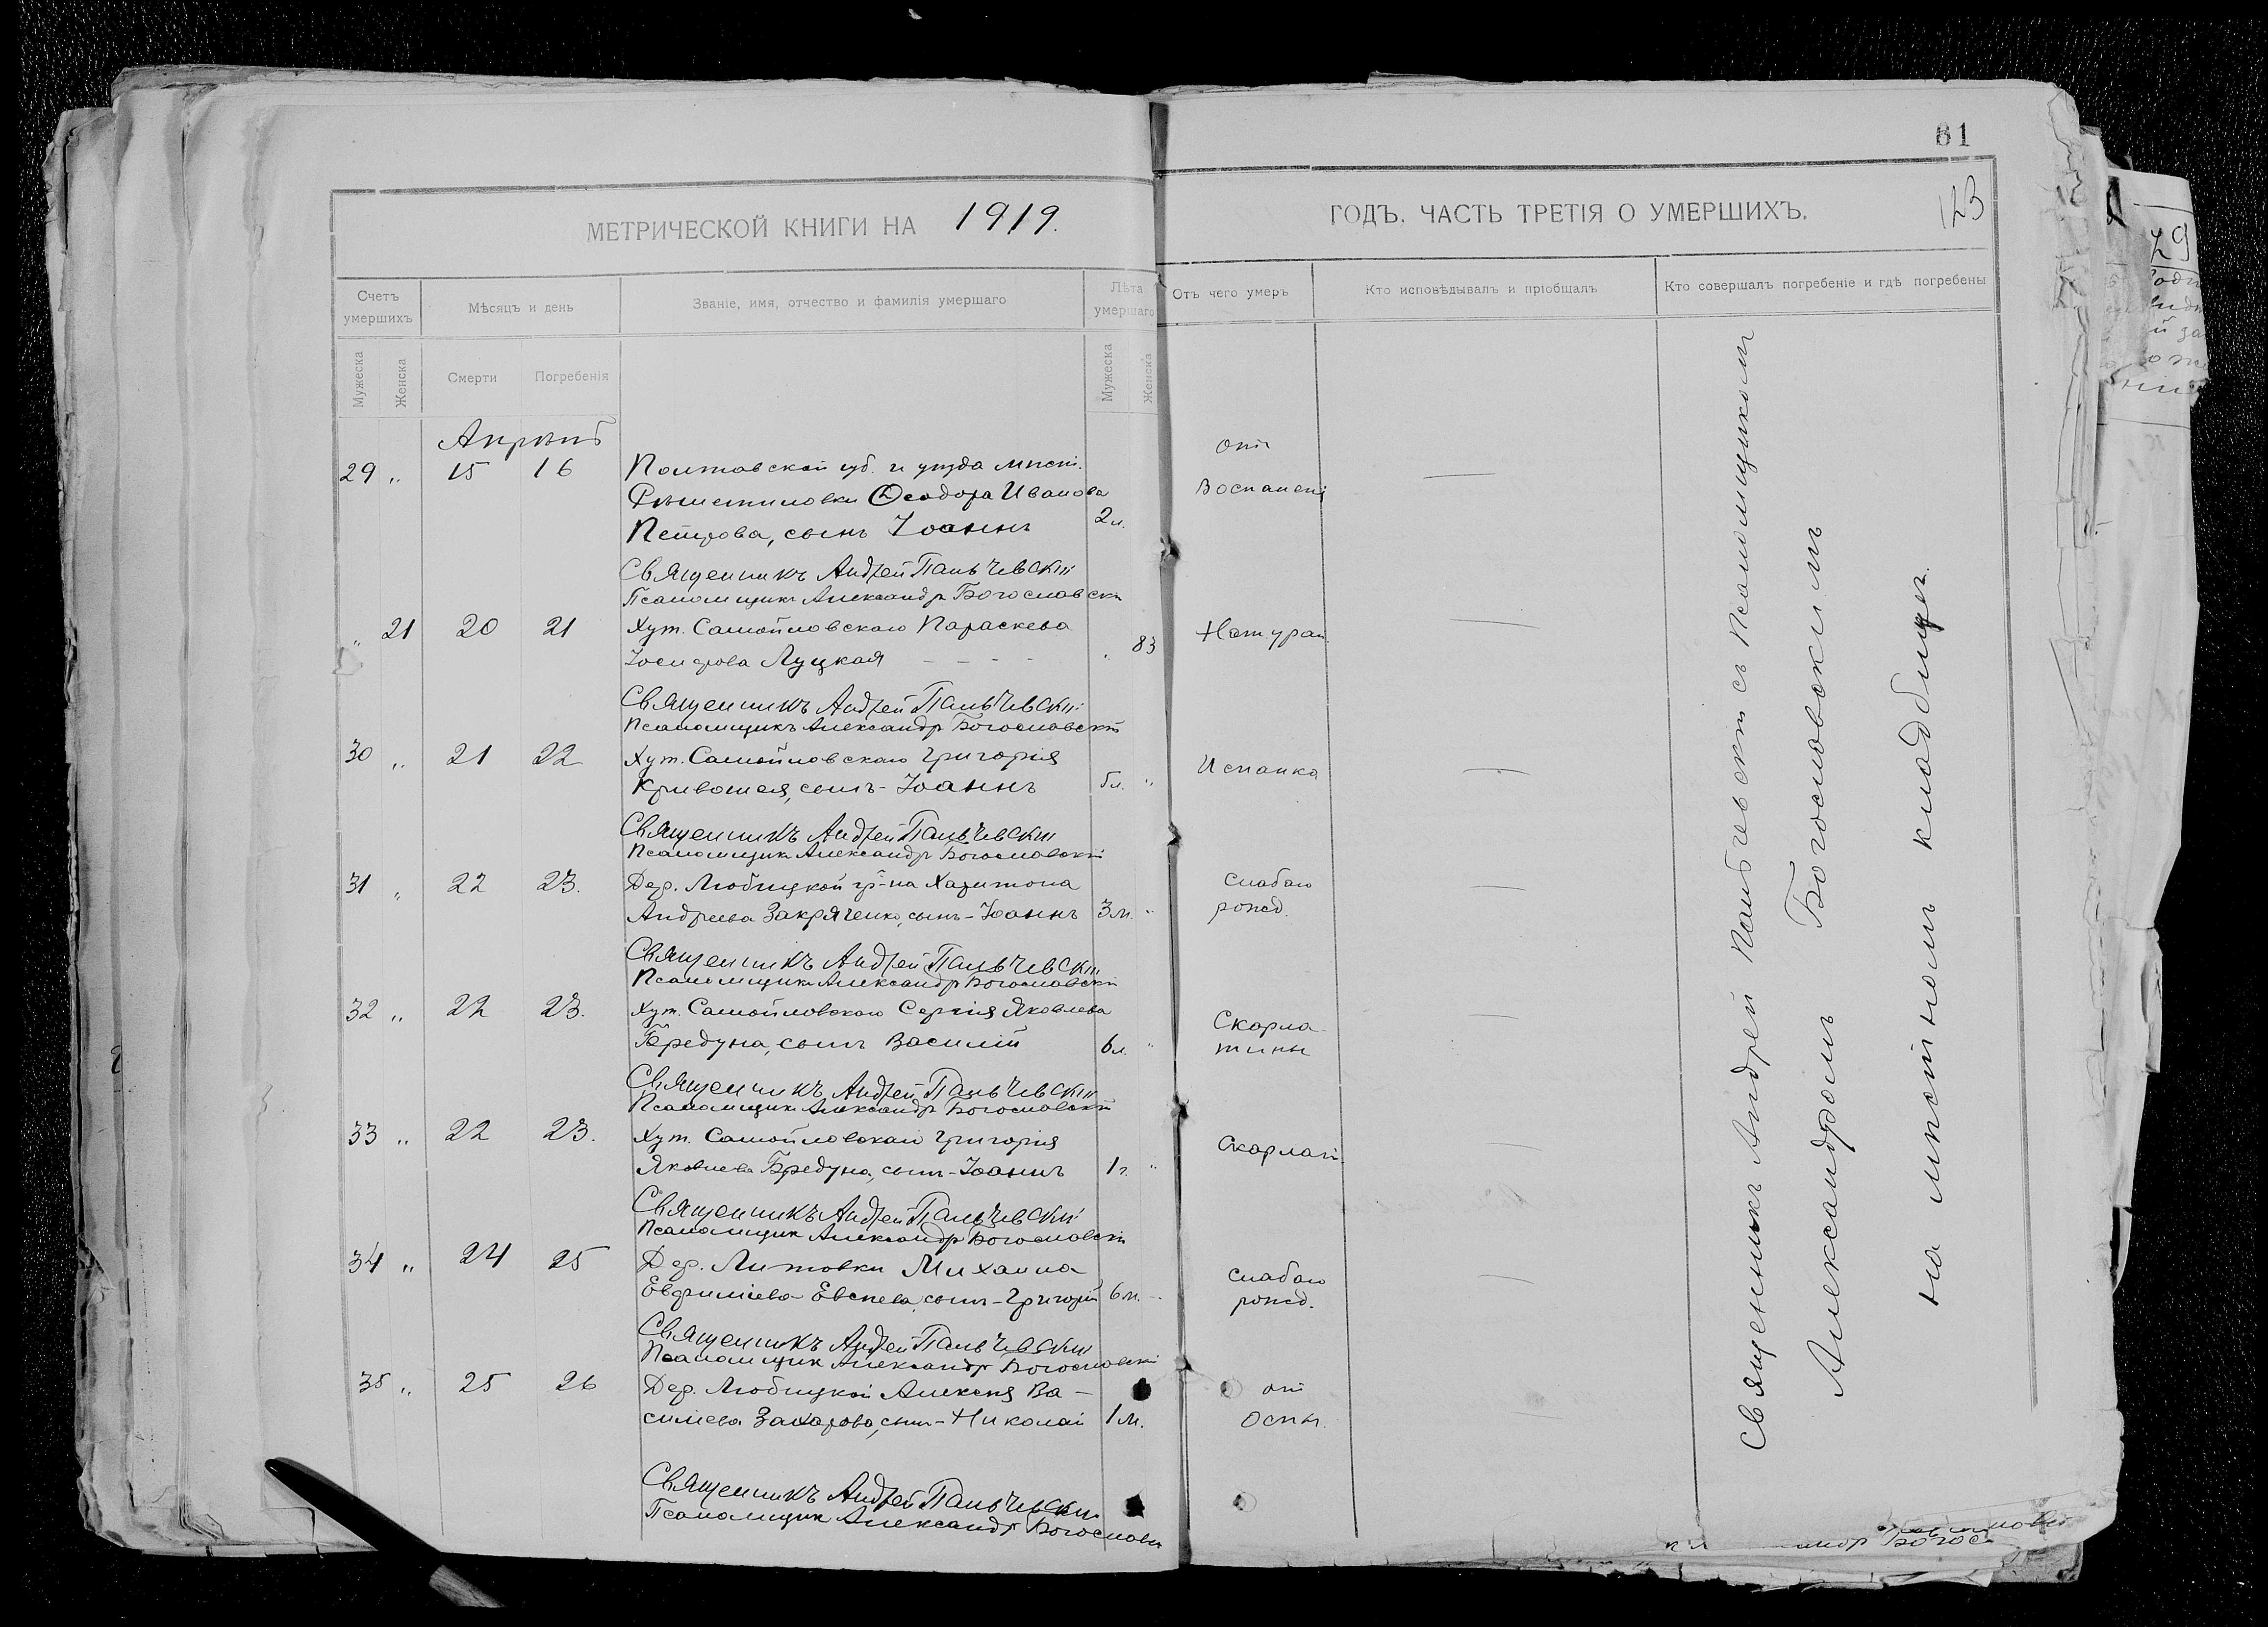 61
123
МЕТРИЧЕСКОЙ КНИГИ НА 1919.
ГОДЪ, ЧАСТЬ ТРЕТІЯ О УМЕРШИХЪ.
Счетъ умершихъ
Мѣсяцъ и день
Званіе, имя, отчество и фамилія умершаго
Лѣта умершаго
Отъ чего умеръ
Кто исповѣдывалъ и пріобщалъ
Кто совершалъ погребеніе и гдѣ погребены
Мужеска
Женска
Смерти
Погребенія
Мужеска
Женска
Апрѣль
29 " 15 16 Полтавской губ. и уѣзда мѣст. отъ
Рѣшетиловки Ѳеодора Иванова Воспалені
Петрова, сынъ Іоаннъ 2 л.
Священникъ Андрей Пальчевскій
Псаломщикъ Александръ Богословскі
" 21 20 21 Хут. Самойловскаго Параскева Натурал.
Іосифова Луцкая - - - - " 83
Священникъ Андрей Пальчевскій
Псаломщикъ Александръ Богословскій
30 " 21 22 Хут. Самойловскаго Григорія Испанка
Кривошея, сынъ - Іоаннъ 5 л. "
Священникъ Андрей Пальчевскій
Псаломщикъ Александръ Богословскій
31 " 22 23. Дер. Любицкой гр-на Харитона слабаго
Андреева Закряченко, сынъ - Іоаннъ 3 м. " рожд.
Священникъ Андрей Пальчевскій
Псаломщикъ Александръ Богословскій
32 " 22 23. Хут. Самойловскаго Сергія Яковлева Скарла-
Бредуна, сынъ Василій 6 л. " тины
Священникъ Андрей Пальчевскій
Псаломщикъ Александръ Богословскій
33 " 22 23. Хут. Самойловскаго Григорія Скарлат.
Яковлева Бредуна, сынъ - Іоаннъ 1 г. "
Священникъ Андрей Пальчевскій
Псаломщикъ Александръ Богословскій
34 " 24 25 Дер. Литовки Михаила слабаго
Евфиміева Евсѣева, сынъ - Григорій 6 м. рожд.
Священникъ Андрей Пальчевскій
Псаломщикъ Александръ Богословскі
35 " 25 26 Дер. Любицкой Алексѣя Ва- отъ
силіева Захарова, сынъ - Николай 1 м. Оспы.
Священникъ Андрей Пальчевскій
Псаломщикъ Александръ Богословск
Священникъ Андрей Пальчевскій съ Псаломщикомъ
Александромъ Богословскимъ
на мѣстномъ кладбищѣ.